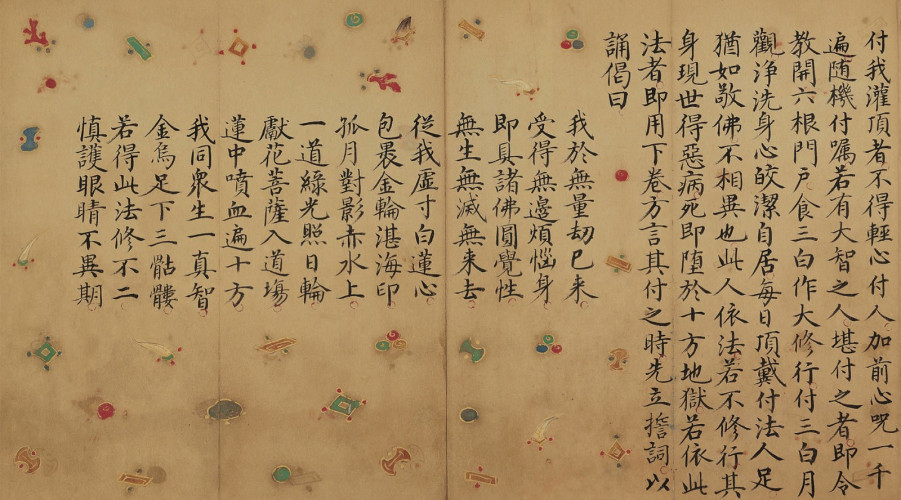 付我灌頂者不得輕心付人加前心呪一千
遍随機付嘱若有大智之人堪付之者即令
教開六根門戶食三白作大修行付三白月
觀淨洗身心皎潔自居每日頂戴付法人足
猶如敬佛不相異也此人依法若不修行其
身現世得惡病死即堕於十方地獄若依此
法者即用下卷方言其付之時先立擔詞以
誦偈曰
我於無量劫已来
受得無邊煩惱身
即具諸佛圓覺性
無生無滅無来去
從我虛寸白蓮心
包褁金輪湛海印
孤月對影赤水上
一道綠光照日輪
獻花菩薩入道塲
蓮中噴血遍十方
我同衆生一真智
金烏足下三骷髏
若得此法修不二
慎護眼睛不異期